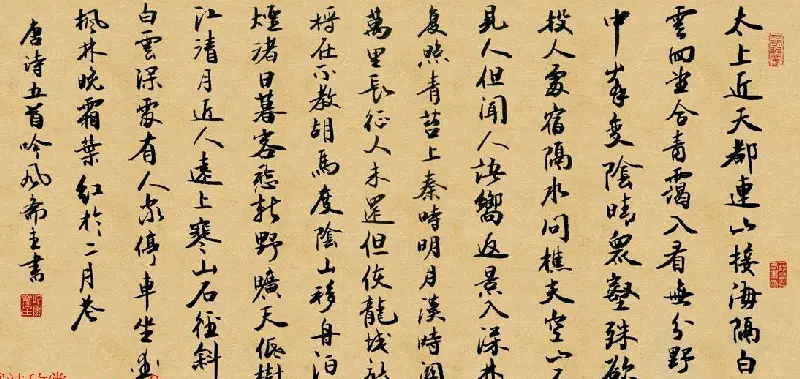 太上近天都連山接海隅白
雲迴望合青靄入看無分野
中峯變陰晴衆壑殊欲
投人處宿隔水問樵夫空山不
見人但聞人語響返景入深林
復照青苔上秦時明月漢時關
萬里長征人未還但使龍城飛
將在不教胡馬度陰山移舟泊
煙渚日暮客愁新野曠天低樹
江清月近人遠上寒山石徑斜
白雲深處有人家停車坐愛
楓林晚霜葉紅於二月花
唐詩五首吟風齋主書